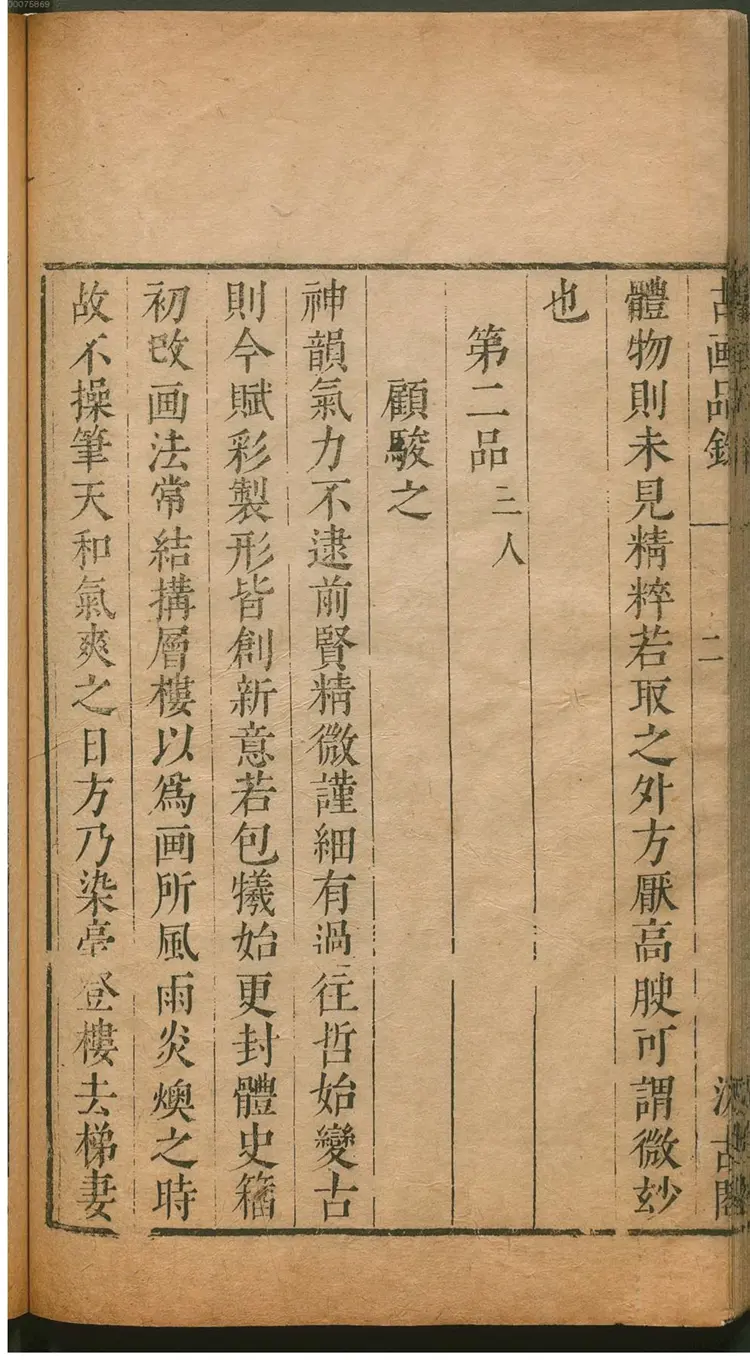 00075869
古画品錄 二 汲古閣
體物則未見精粹若取之外方厭高腴可謂微玅
也
第二品 三人
顧駿之
神韻氣力不逮前賢精微謹細有過往哲始變古
則今賦彩製形皆創新意若包犧始更封體史籀
初改画法常結搆層樓以爲画所風雨炎燠之時
故不操筆天和氣爽之日方乃染亳登樓去梯妻